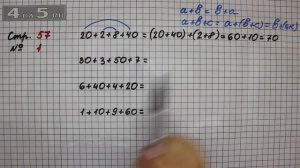 4 по 5.
Стр. 57
№ 1
20+2+8+40 = (20+40)+(2+8)=60+10=70
30+3+50+7=
6+40+4+20=
1+10+9+60=
а+в=в+а
а+в+к=а+(в+к)=в+(а+к)